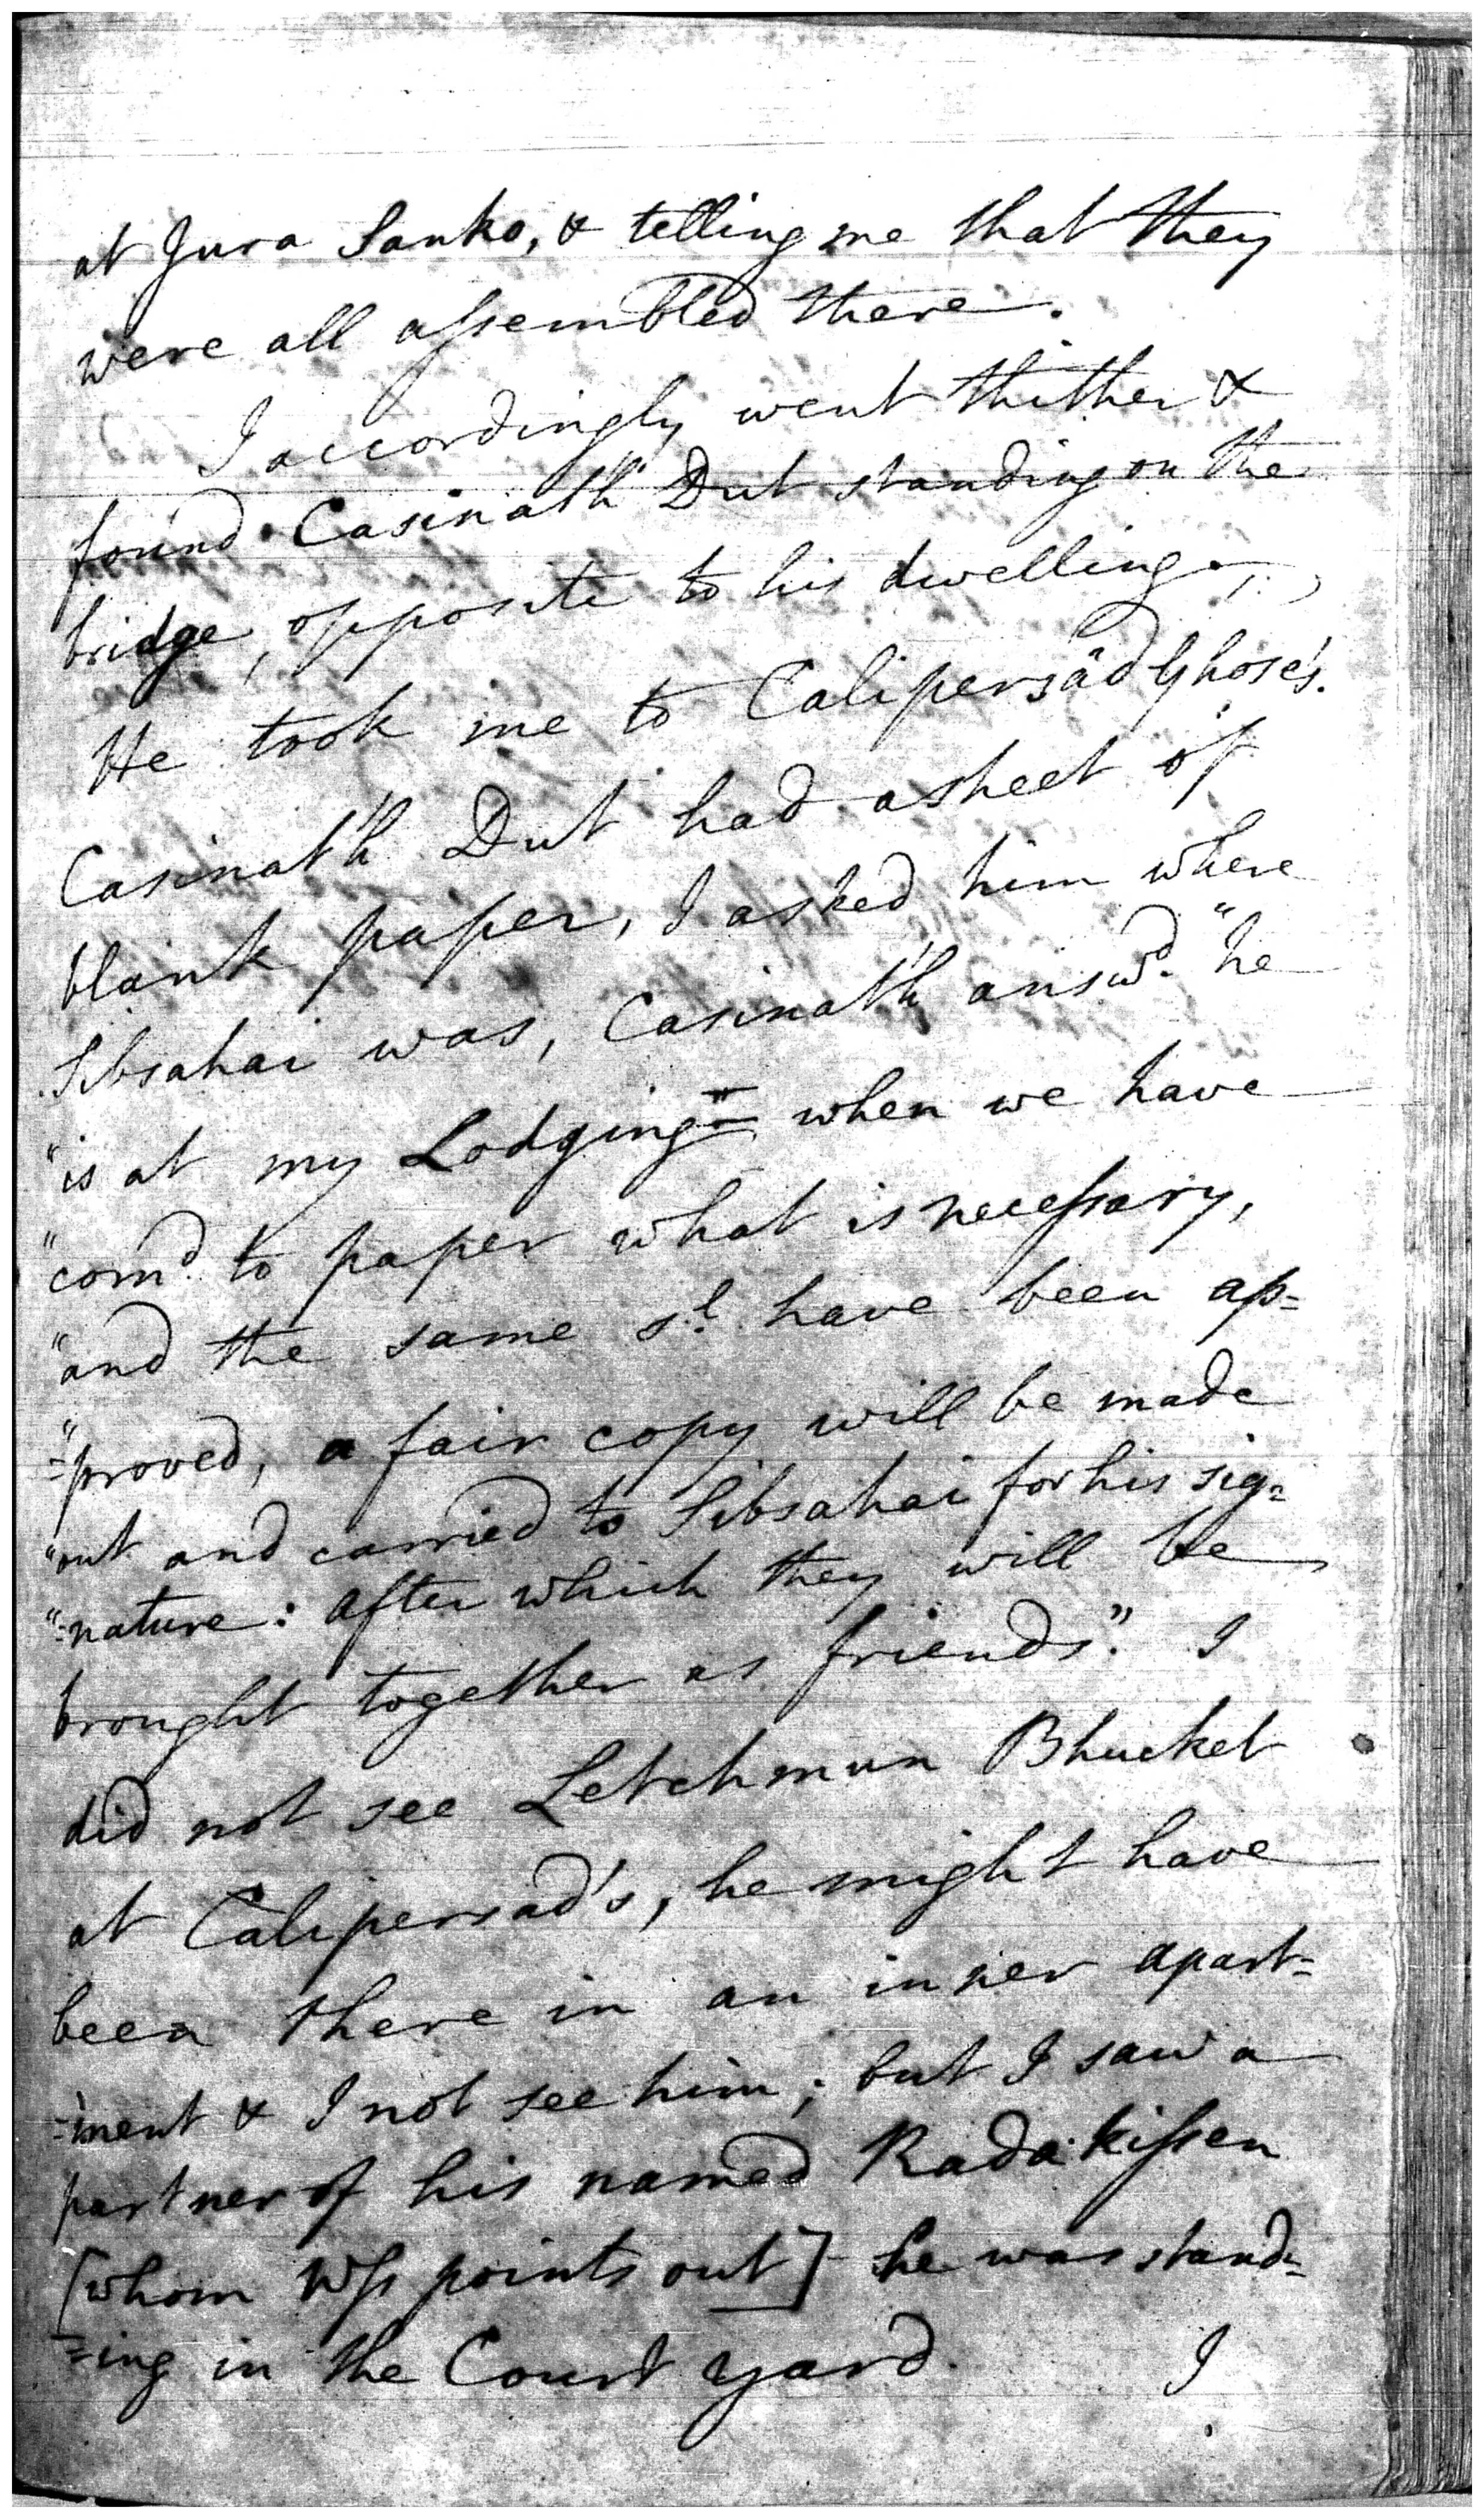 at Jura Sanko, & telling me that they
were all assembled there.
I accordingly went thither &
found Casinath Dut standing on the
bridge, opposite to his dwelling.
He took me to Calipersâd Ghose's.
Casinath Dut had a sheet of
blank paper, I asked him where
Sibsahai was, Casinath answd. "he
"is at my Lodging" when we have
"comd. to paper what is necessary,
"and the same sl. have been ap=
"=proved, a fair copy will be made
"out and carried to Sibsahai for his sig=
"=nature: after which they will be
brought together as friends". I
did not see Letchmun Bhucket
at Calipersad's, he might have
been there in an inner apart=
=ment & I not see him; but I saw a
partner of his named Radakissen
[whom Wss points out] he was stand=
=ing in the Court yard. I